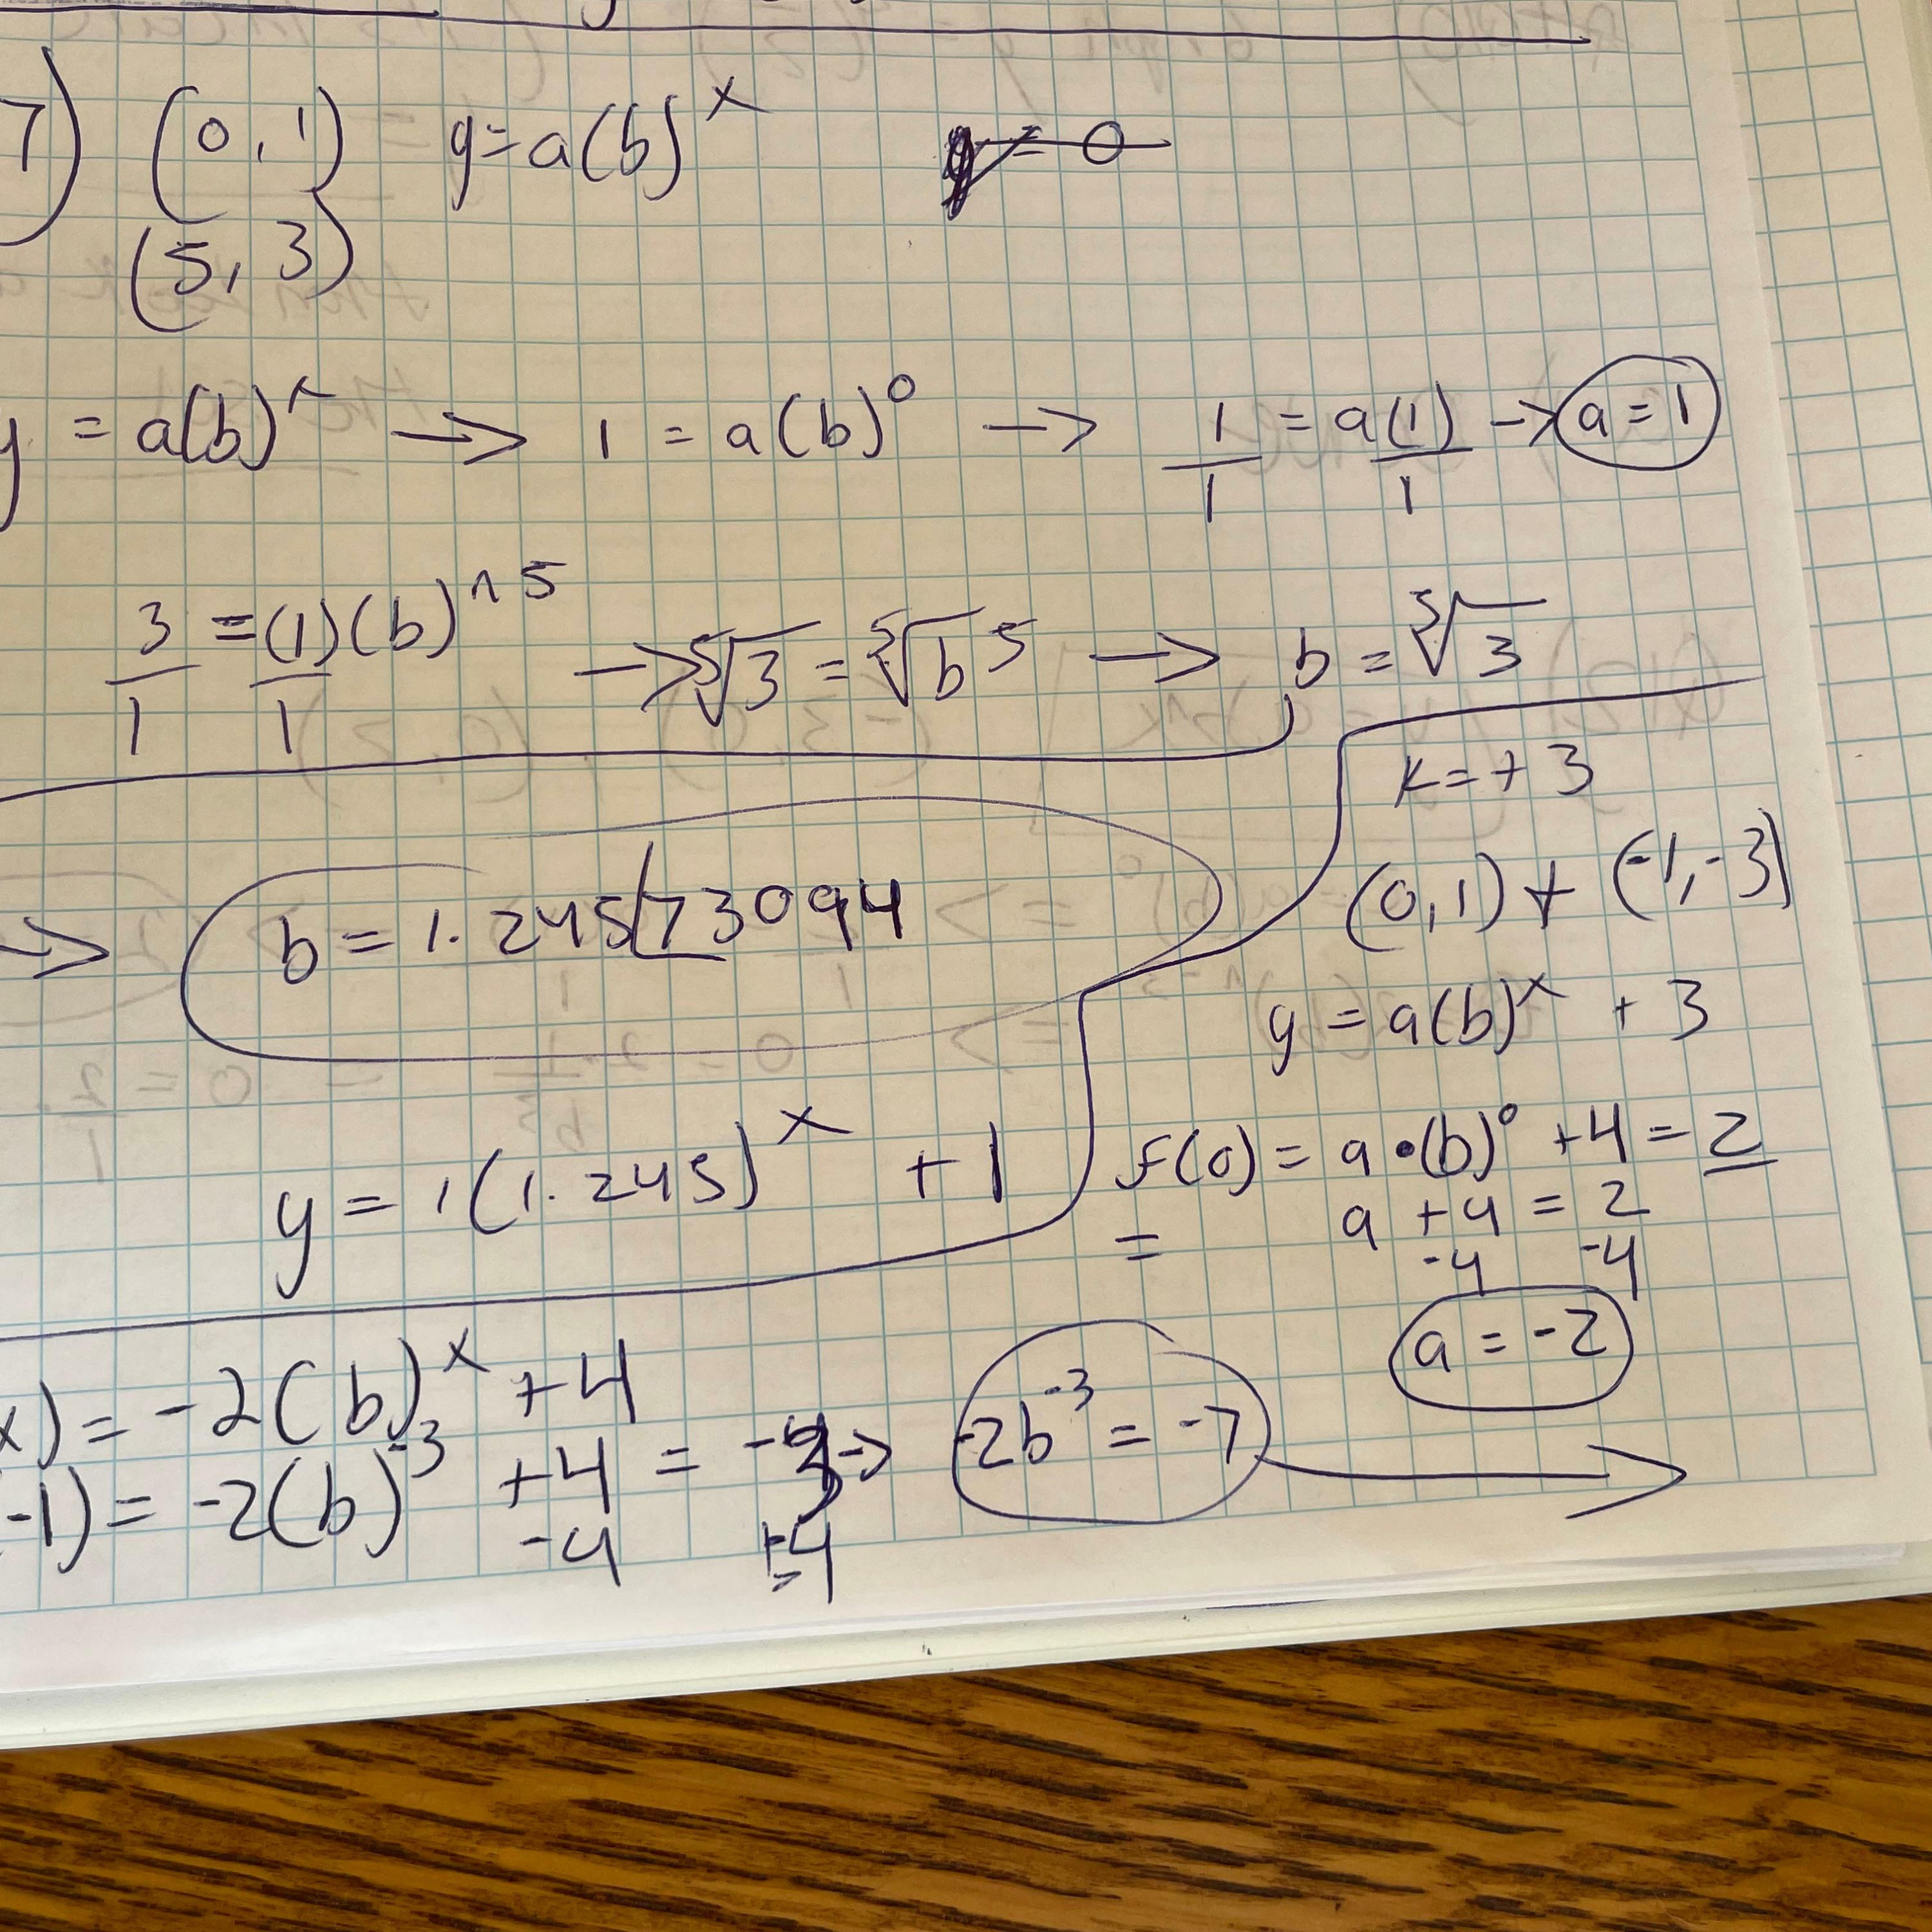 7) (0, 1) y = a(b)^x
(5, 3)
y = a(b)^x → 1 = a(b)^0 → 1/1 = a(1)/1 → a = 1
3/1 = (1)(b)^5/1 → ⁵√3 = ⁵√b^5 → b = ⁵√3
→ b = 1.24573094
y = 1(1.245)^x + 1
k = +3
(0, 1) + (-1, -3)
y = a(b)^x + 3
f(0) = a•(b)^0 + 4 = 2
= a + 4 = 2
-4 -4
a = -2
x) = -2(b)^x + 4
-1) = -2(b)^-3 + 4 = → -2b^-3 = -7 →
-4 -4